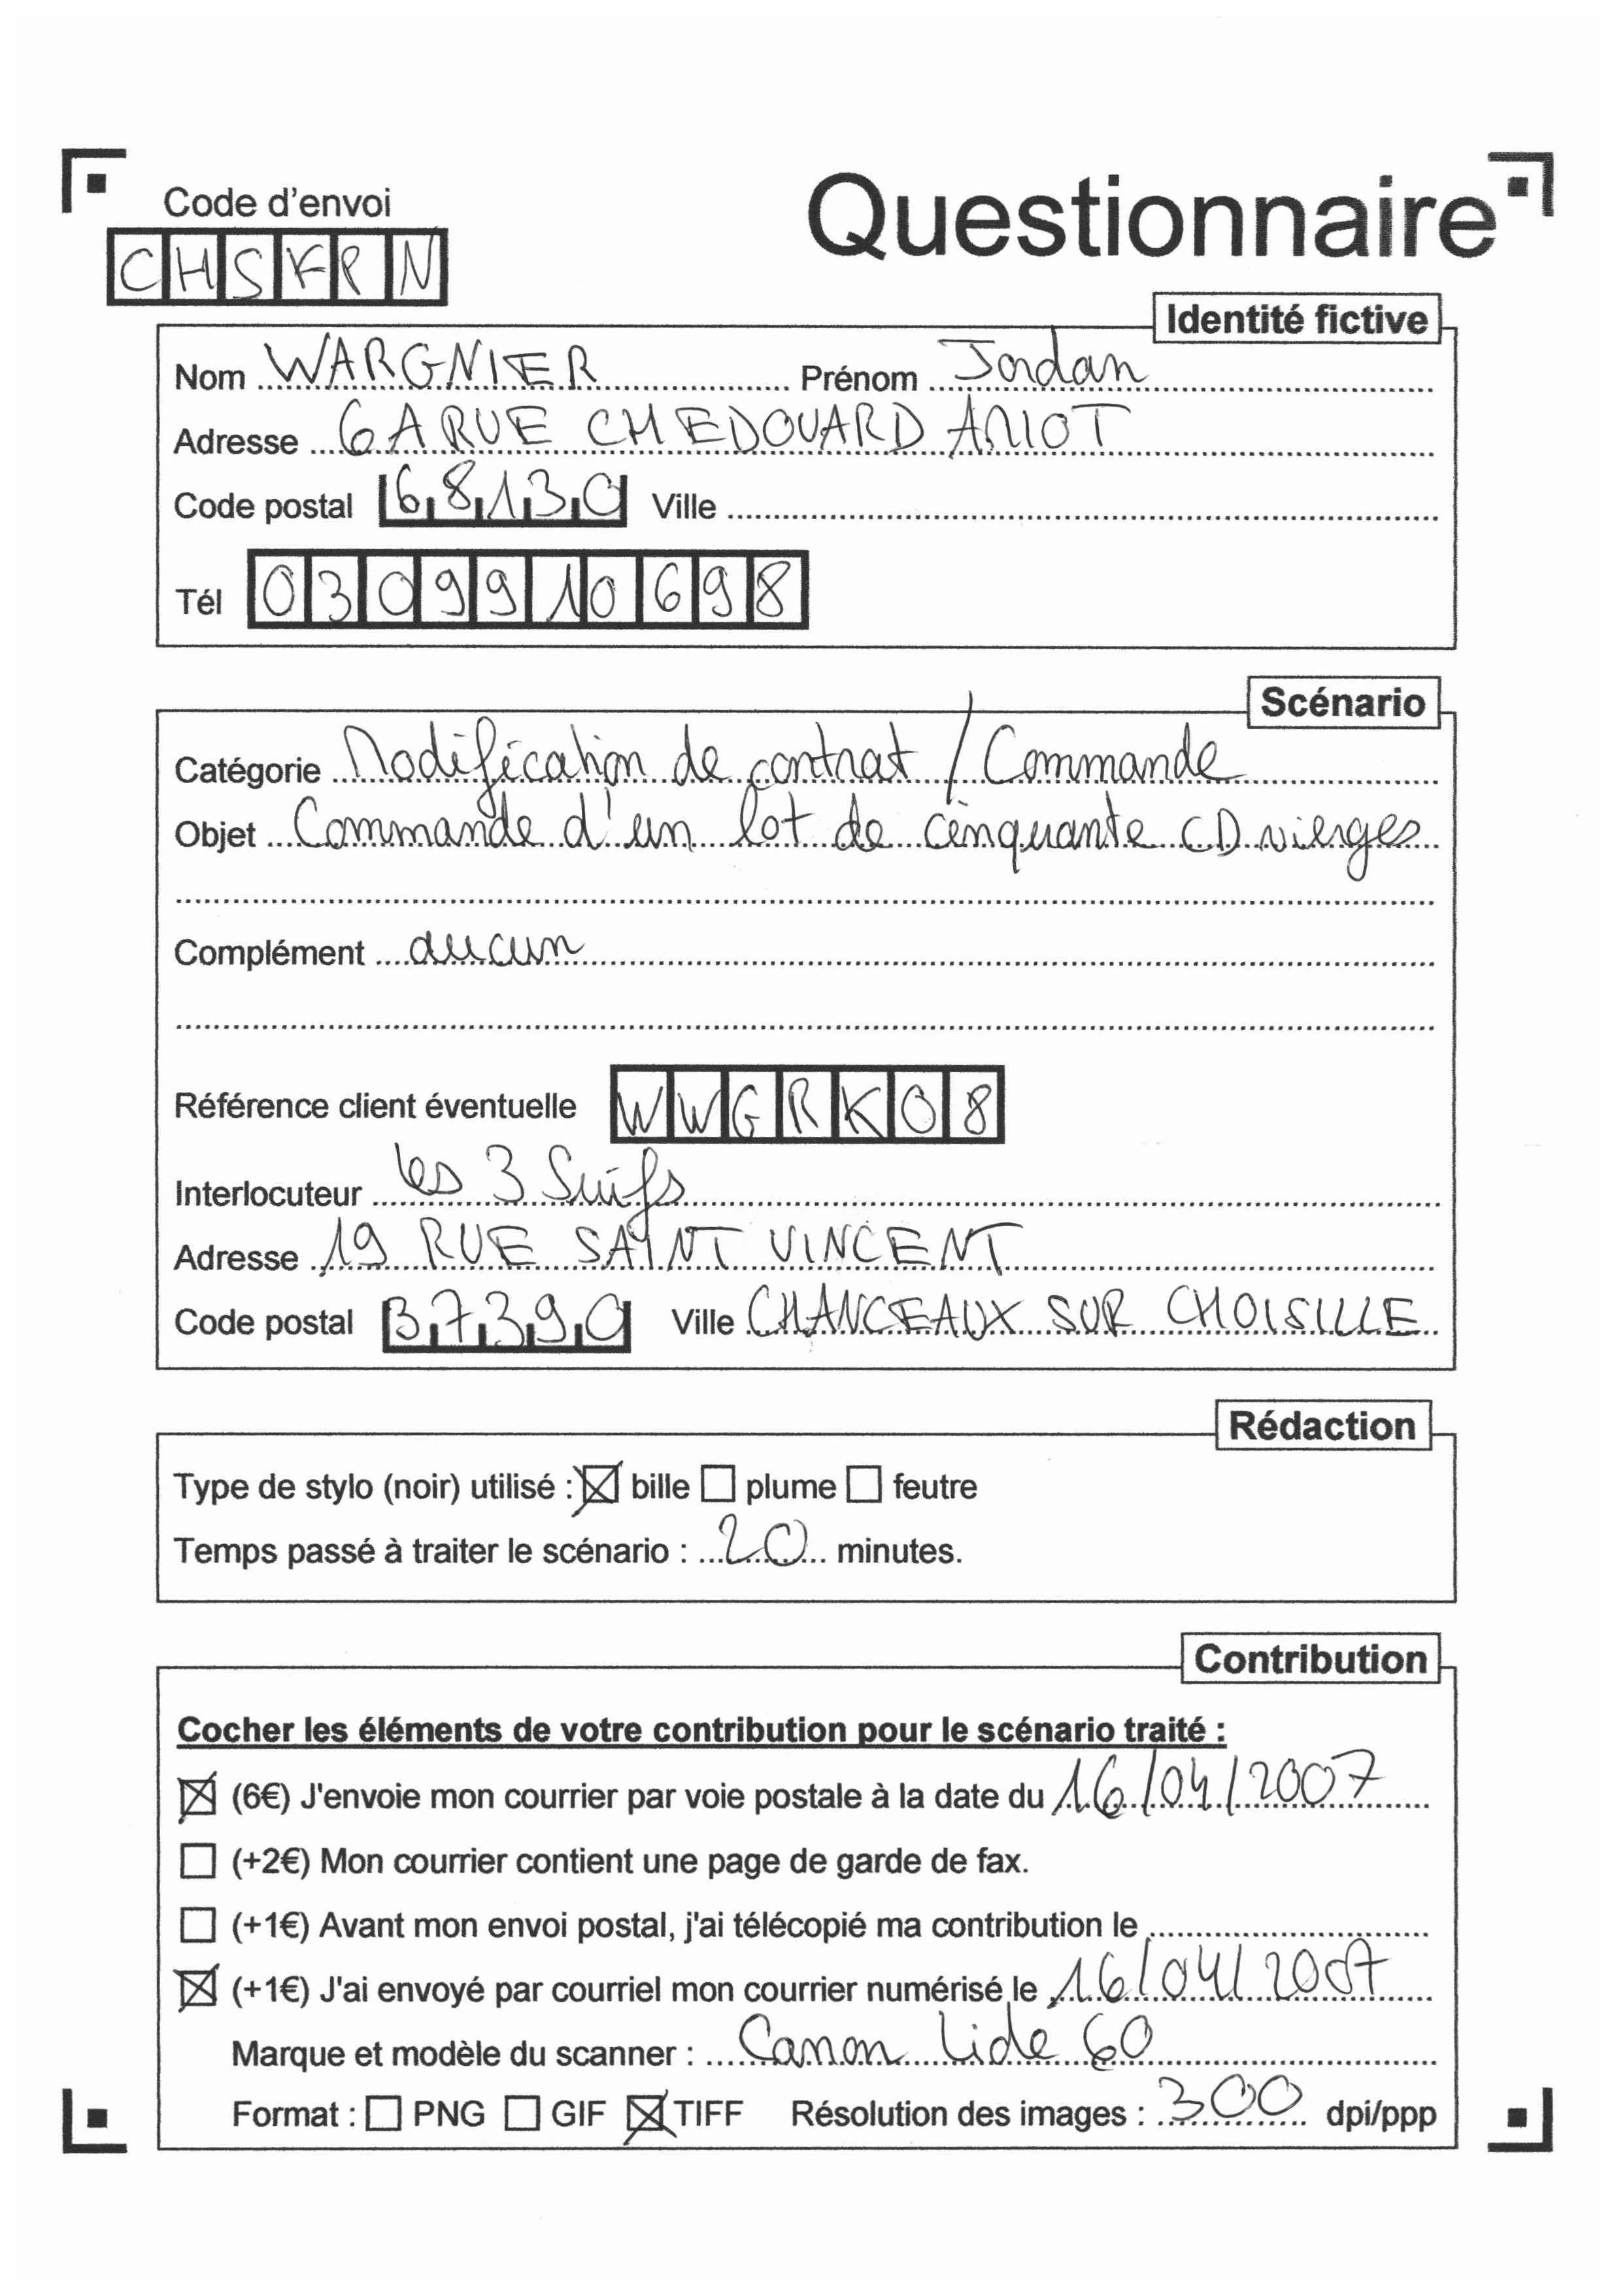 Code d'envoi
Questionnaire
CHSKPN
Identité fictive
Nom WARGNIER Prénom Jordan
Adresse 6A RUE CH EDOUARD AMIOT
Code postal 68130 Ville
Tél 0309910698
Scénario
Catégorie Modification de contrat / Commande
Objet Commande d'un lot de cinquante CD vierges
Complément aucun
Référence client éventuelle WWGRK08
Interlocuteur les 3 Suifs
Adresse 19 RUE SAINT VINCENT
Code postal 37390 Ville CHANCEAUX SUR CHOISILLE
Rédaction
Type de stylo (noir) utilisé : bille plume feutre
Temps passé à traiter le scénario : 20 minutes.
Contribution
Cocher les éléments de votre contribution pour le scénario traité :
(6€) J'envoie mon courrier par voie postale à la date du 16/04/2007
(+2€) Mon courrier contient une page de garde de fax.
(+1€) Avant mon envoi postal, j'ai télécopié ma contribution le
(+1€) J'ai envoyé par courriel mon courrier numérisé le 16/04/2007
Marque et modèle du scanner : Canon Lide 60
Format : PNG GIF TIFF Résolution des images : 300 dpi/ppp